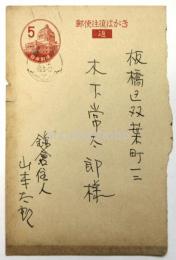 郵便往復はがき
5
板橋区双葉町一三
木下常太郎様
鎌倉住人
山本太郎